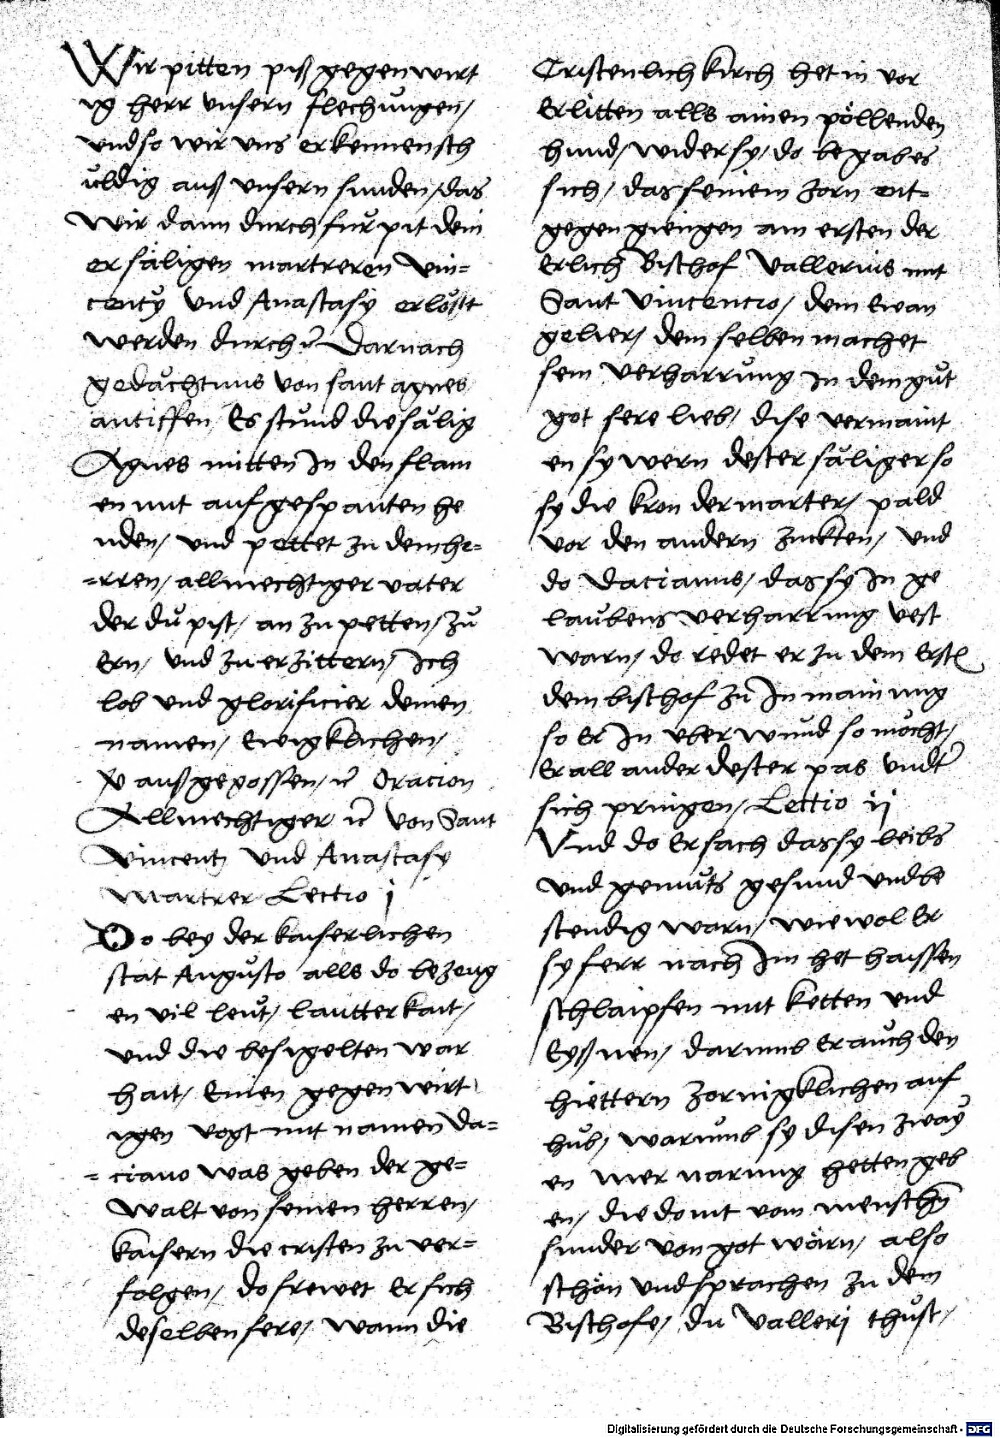 Wir pitten piß gegenwirt
ig herr vnsern flechungen /
vnd so wir vns erkennen sch
uldig auß vnsern sunden / das
wir dann durch fur pit dein
er säligen martreren Vin=
centy vnd Anastasy erlößt
werden durch Darnach
gedächtnus von sant agnes
antiffen Es stund die sälig
Agnes mitten In den flam
en mit auf gespanten he
nden / vnd pettet zu dem he=
=rren / allmechtiger vater
der du pist / an zu petten / zu
Ern / vnd zu erzittern / Ich
lob vnd glorificier deinen
namen / Ewigklichen /
außgegossen / Oracion
Allmechtiger von Sant
Vincentz vnd Anastasy
martrer Lectio j
Do bey der kaiserlichen
stat Augusto alls do bezeug
en vil leut / lautterkait /
vnd die besigelten war
hait / Einen gegenwirt
igen vogt mit namen Da=
=ciano was geben der ge=
walt von seinen herren /
kaisern die cristen zu ver=
folgen / do frewet Er sich
deselben sere / wann die
Cristenlich kirch het in vor
Erlitten alls ainen pöllenden
hund / wider sy / do begab es
sich / das seinem zorn ent=
gegen giengen am ersten der
Erlich Bischof Vallerius mit
Sant Vincencio / dem Ewan
gelier / dem selben machet
sein verharrung in dem gut
got sere lieb / dise vermaint
en sy wern dester säliger so
sy die kron der marter / pald
vor den andern zuckten / vnd
do Dacianus / das sy In ge
laubens verharrung vest
warn / do redet er zu dem Erst
dem bischof zu In mainung
so Er In vber wund so möcht /
Er all ander dester pas vndter
sich pringen / Lectio ij
Vnd do Er sach das sy leibs
vnd gemüts gesund vnd be
stendig warn / wie wol Er
sy ferr nach Im het haissen
schlaipfen mit ketten vnd
Eyßnen / darumb Er auch den
hiettern zornigklichen auf
hub / warumb sy disen zway
en mer narung hetten geb
en / die do nit vom menschen
sunder von got wärn / also
schön vnd sprachen zu dem
Bischofe / du Vallerj thust /
Digitalisierung gefördert durch die Deutsche Forschungsgemeinschaft - DFG